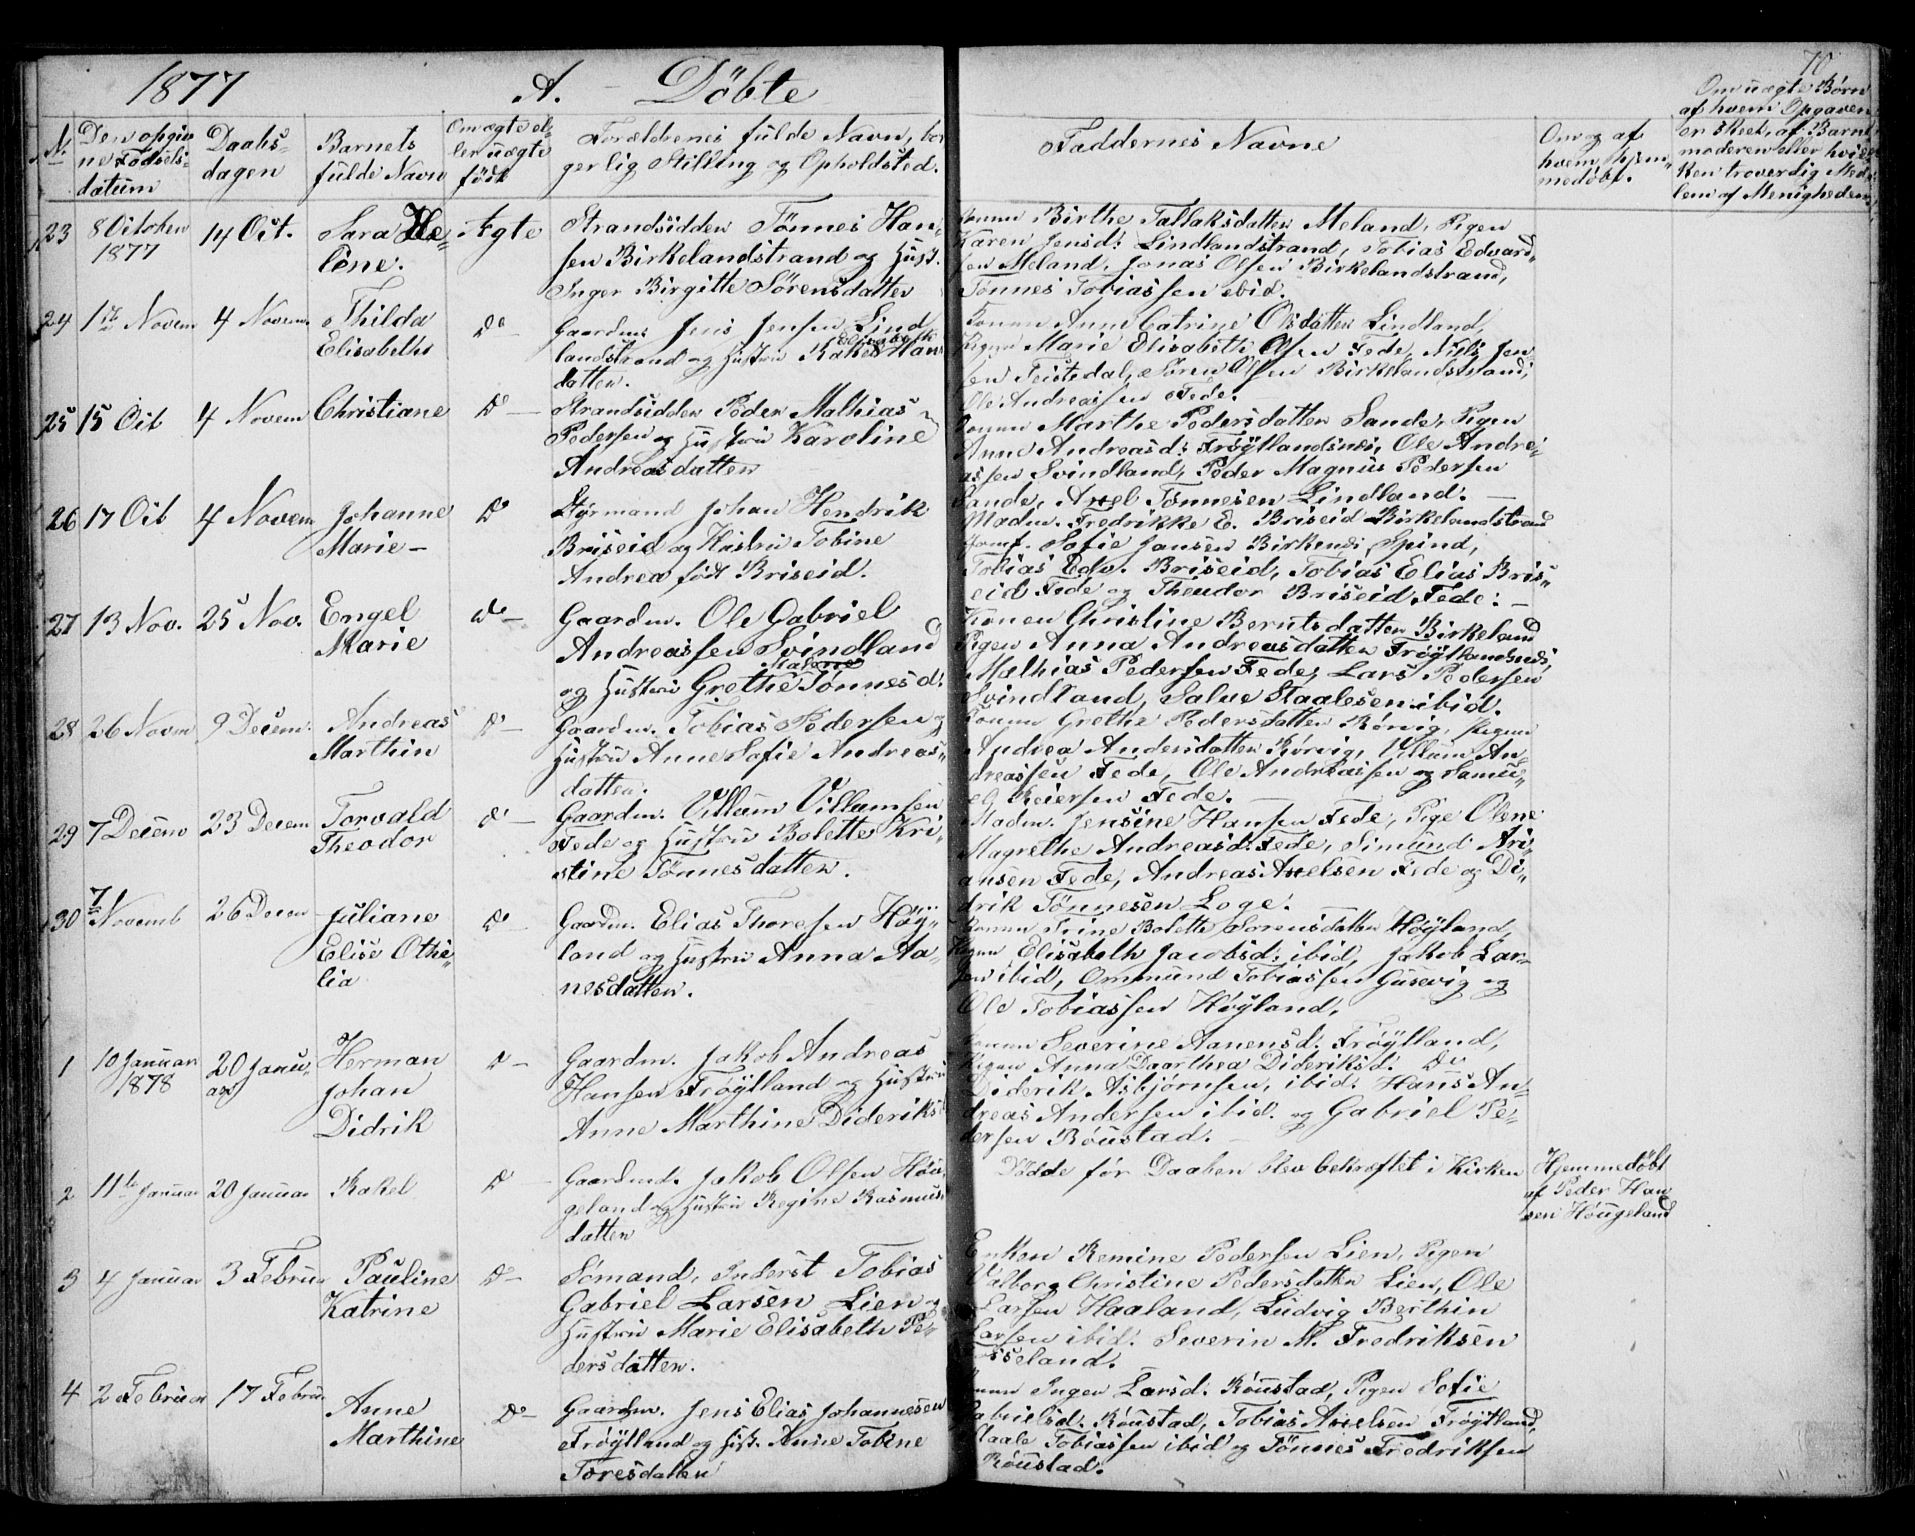 1877 A. Döbte
70
No.
Den opgiv
ne Födsels-
datum
Daabs-
dagen
Barnets
fulde Navn
Om ægte el-
ler uægte
födt
Forældrenes fulde Navn, bor
gerlig Stilling og Opholdsted.
Faddernes Navne
Om og af
hvem hjem-
medöbt.
Om uægte Börn
af hvem Opgaven
er skeet, af Barnets
moderen eller hvil-
ken troverdig Med-
lem af Menigheden
23
8 October
1877
14 Oct.
Sara He-
lene.
Ægte
Strandsidder Tönnes Han-
sen Birkelandstrand og Hust.
Inger Birgitte Sörensdatter
Konen Birthe Tallaksdatter Meland, Pigen
Karen Jensd: Lindlandstrand, Tobias Edvard-
sen Meland, Jonas Olsen Birkelandstrand,
Tönnes Tobiassen ibid.
24
1te Novem
4 Novem.
Thilda
Elisabeth
Do
Gaardm. Jens Jensen Lind
landstrand og Hustru Rakel Elisabeth Hans
datter.
Konen Anne Catrine Olsdatter Lindland,
Pigen Marie Elisabeth Olsen Fede, Nils Jen
sen Feistedal, Sören Olsen Birkelandstrand,
Ole Andreassen Fede.
25
15 Oct
4 Novem
Christiane
Do —
Strandsidder Peder Mathias
Pedersen og Hustru Karoline
Andreasdatter
Konen Marthe Pedersdatter Sande, Pigen
Anne Andreasd: Fröytlandsnæs, Ole Andre-
assen Svindland, Peder Magnus Pedersen
Sande, Axel Tönnesen Lindland. —
26
17 Oct
4 Novem
Johanne
Marie —
Do
Styrmand Johan Hendrik
Briseid og Hustru Tobine
Andrea födt Briseid.
Madm. Fredrikke E. Briseid Birkelandstrand
Jomf. Sofie Jansen Birkenæs Spind,
Tobias Edv. Briseid, Tobias Elias Bris-
eid Fede og Theodor Briseid Fede: —
27
13 Nov.
25 Nov.
Engel
Marie
Do —
Gaardm. Ole Gabriel
Andreassen Svindland
og Hustru Grethe Malene Tönnesd:
Konen Christine Berntsdatter Birkeland
Pigen Anna Andreasdatter Fröytlandsnæs,
Mathias Pedersen Fede, Lars Pedersen
Svindland, Salve Staalesen ibid.
28
26 Novm
9 Decem.
Andreas
Marthin
Do —
Gaardm. Tobias Pedersen og
Hustru Anne Sofie Andreas-
datter.
Konen Grethe Pedersdatter Rörvig, Pigen
Andrea Andersdatter Rörvig, Villum An-
dreassen Fede, Ole Andreassen og Samu-
el Reiersen Fede.
29
7 Decem
23 Decem
Torvald
Theodor
Do —
Gaardm. Villum Villumsen
Fede og Hustru Bolette Kri-
stine Tönnesdatter.
Madm. Jensine Hansen Fede, Pige Olene
Magrethe Andreasd: Fede, Simund Ari-
ansen Fede, Andreas Axelsen Fede og Di-
drik Tönnesen Loge.
30
7
Novemb
26 Decem
Juliane
Elise Othe-
lia
Do —
Gaardm. Elias Thoresen Höy-
land og Hustru Anna Aa-
nesdatter.
Konen Trine Bolette Sorensdatter Höyland,
Elisabeth Jacobsd: ibid, Jakob Lar-
sen ibid, Ommund Tobiassen Gusevig og
Ole Tobiassen Höyland.
1
10 Januar
1878
20 Janu-
ar
Herman
Johan
Didrik
Do —
Gaardm. Jakob Andreas
Hansen Fröytland og Hustru
Anne Marthine Dideriksd
Konen Severine Aanensd: Fröytland,
Pigen Anna Daarthea Dideriksd: Do
Diderik Asbjörnsen, ibid: Hans An-
dreas Andersen ibid. og Gabriel Pe-
dersen Röustad. —
2
11te Januar
20 Januar
Rakel
Do —
Gaardmd. Jakob Olsen Höu-
geland og Hustru Regine Rasmus
datter
Döde för Daaben blev bekræftet i Kirken
Hjemmedöbt
af Peder Han
sen Höugeland
3
4 Januar
3 Februar
Pauline
Katrine
Do —
Sömand, Inderst Tobias
Gabriel Larsen Lien og
Hustru Marie Elisabeth Pe-
dersdatter.
Enken Remine Pedersen Lien, Pigen
Valborg Christine Pedersdatter Lien, Ole
Larsen Haaland, Ludvig Berthin
Larsen ibid: Severin M. Fredriksen
Esseland.
4
2 Februar
17 Februar
Anne
Marthine
Do —
Gaardm. Jens Elias Johannesen
Fröytland og Hust. Anne Tobine
Toresdatter
Konen Inger Larsd: Röustad, Pigen Sofie
Gabrielsd. Röustad, Tobias Axelsen Fröytland,
Staale Tobiassen ibid og Tönnes Fredriksen
Röustad.